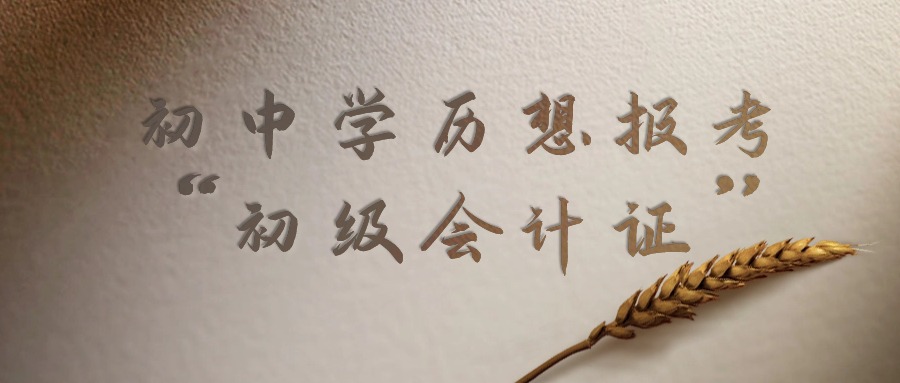 初中学历想报考
“初级会计证”